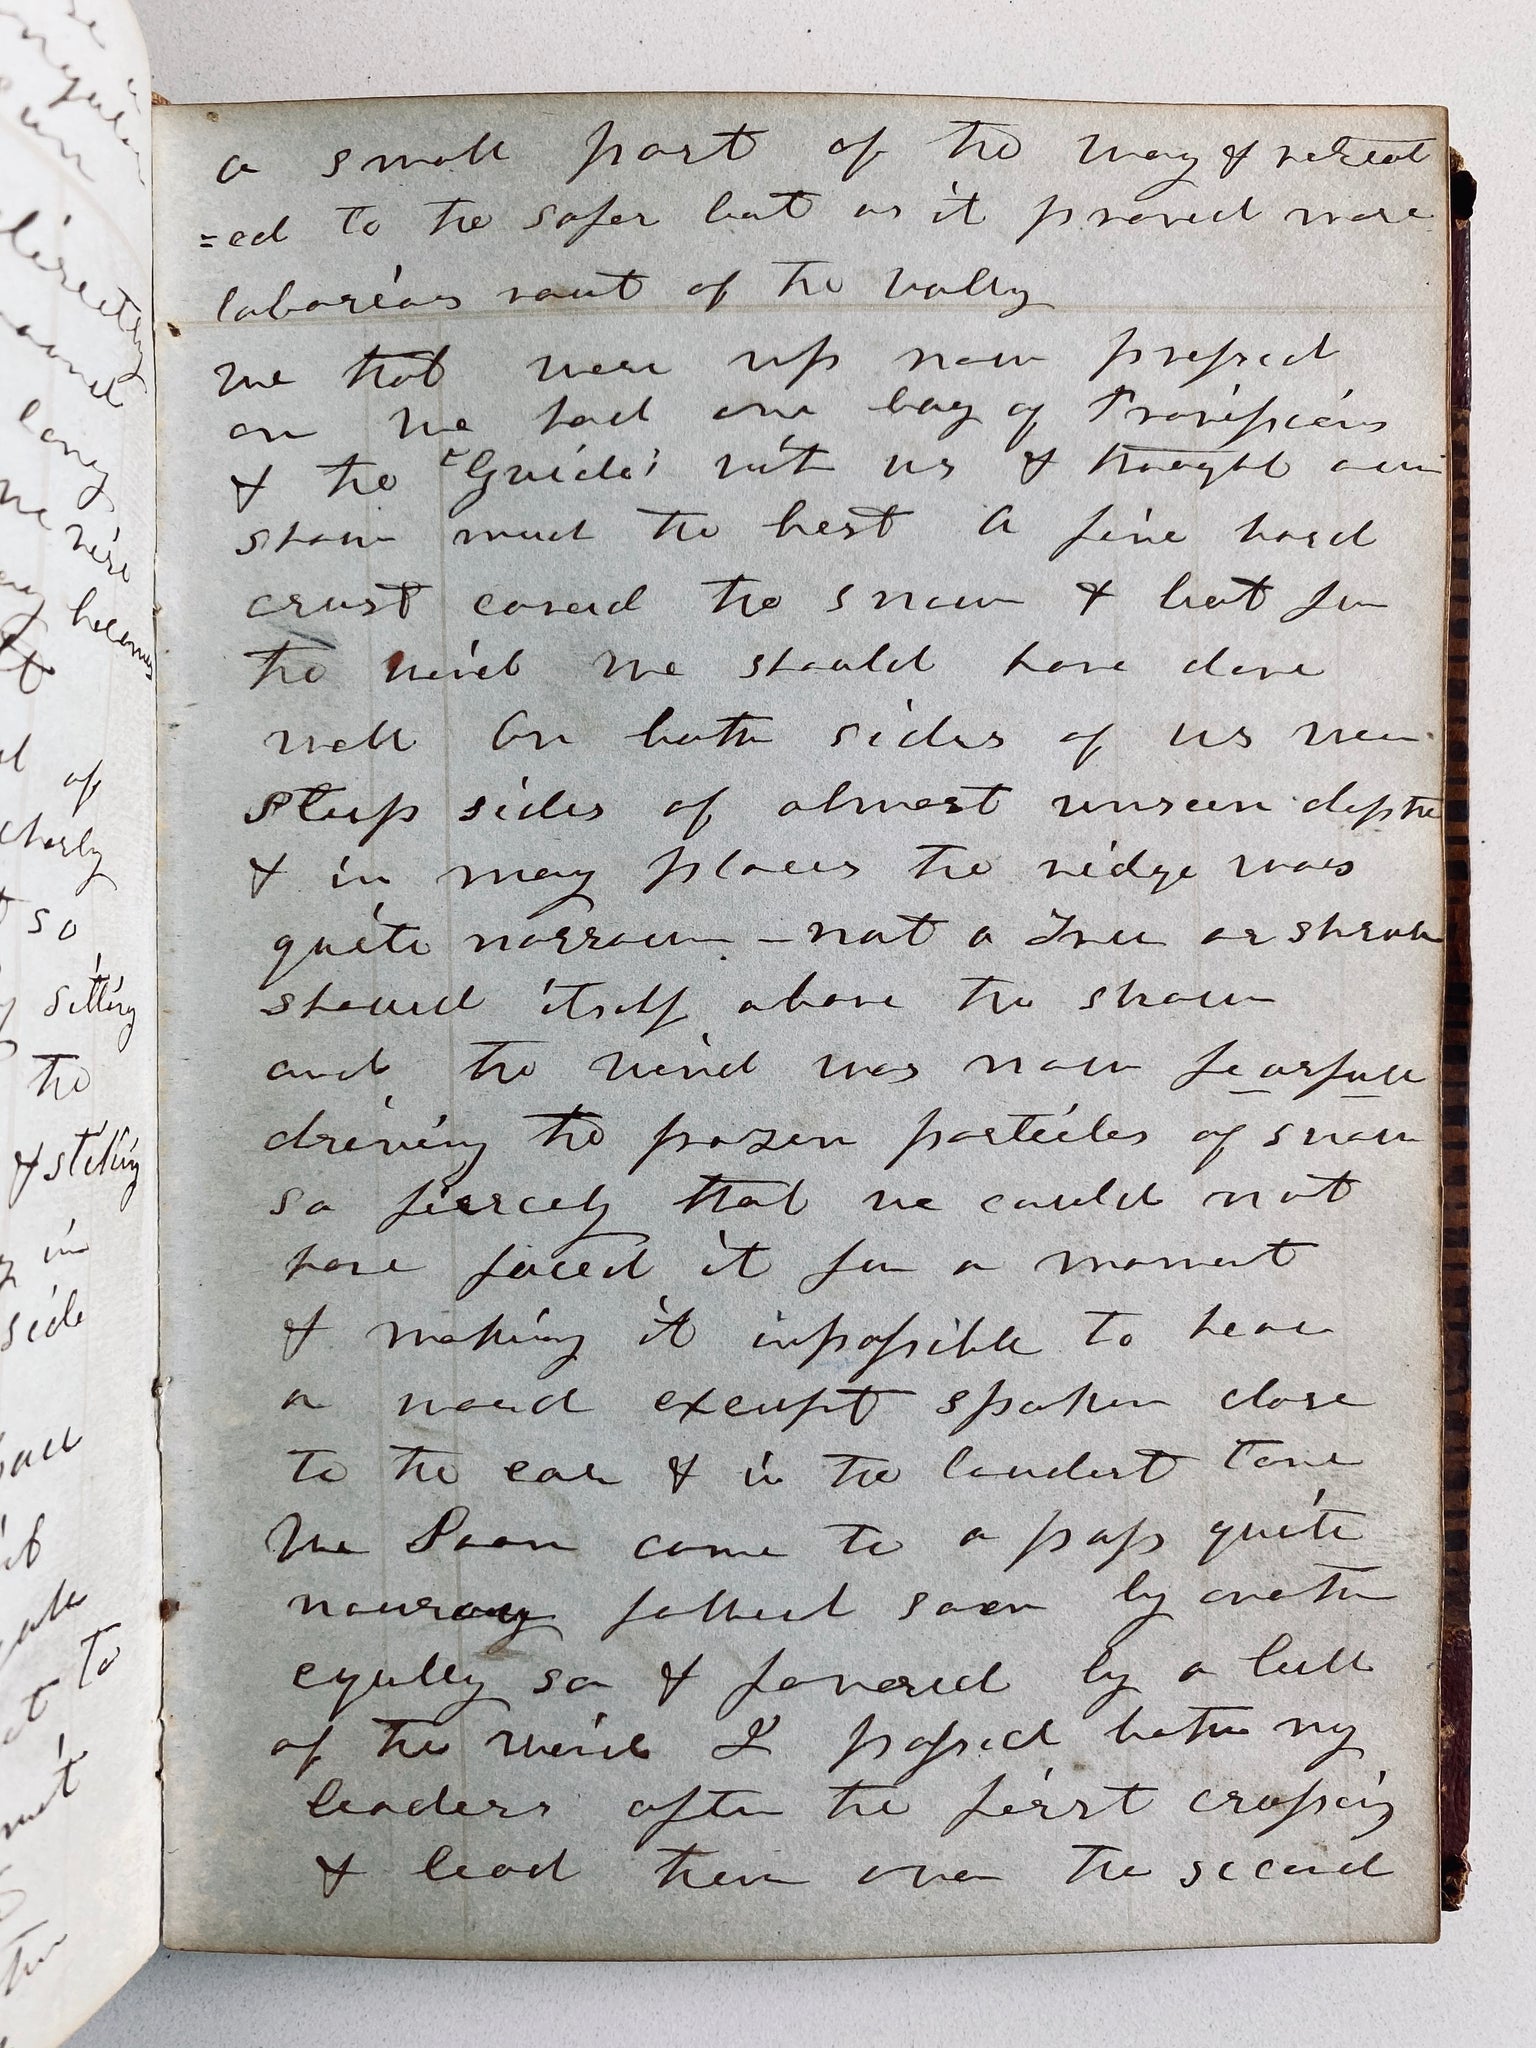 a small part of the way & retreat
=ed to the safer but as it proved more
laborious rout of the vally
We that were up now pressed
on We had one bag of Provissions
& the "Guide" with us & thought our
show much the best A fine hard
crust coverd the snow & but for
the wind we should have done
well On both sides of us were
steep sides of almost unseen depth
& in may places the ridge was
quite narrow – not a Tree or shrub
showed itself above the snow
and the wind was now fearfull
driving the frozen particles of snow
so fiercely that we could not
have faced it for a moment
& making it impossible to hear
a word except spoken close
to the ear & in the loudest tone
We Soon came to a pass quite
narrow followed soon by another
equlley so & favored by a lull
of the wind I passed both my
leaders after the first crossing
& lead them over the second
directly
long
we rise
becomes
of
so
sitting
the
& sticking
in
side
to